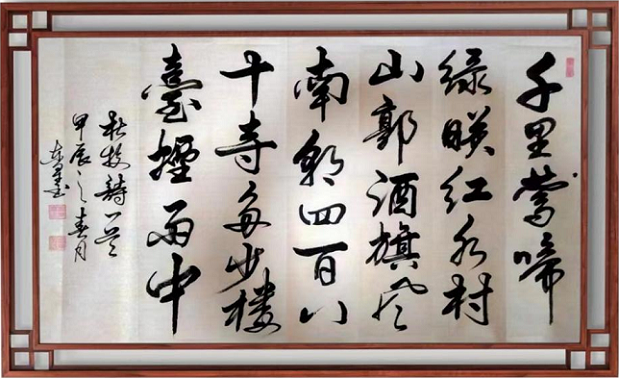 千里莺啼
绿暎红水村
山郭酒旗风
南朝四百八
十寺多少楼
臺煙雨中
杜牧詩一首
甲辰之春月